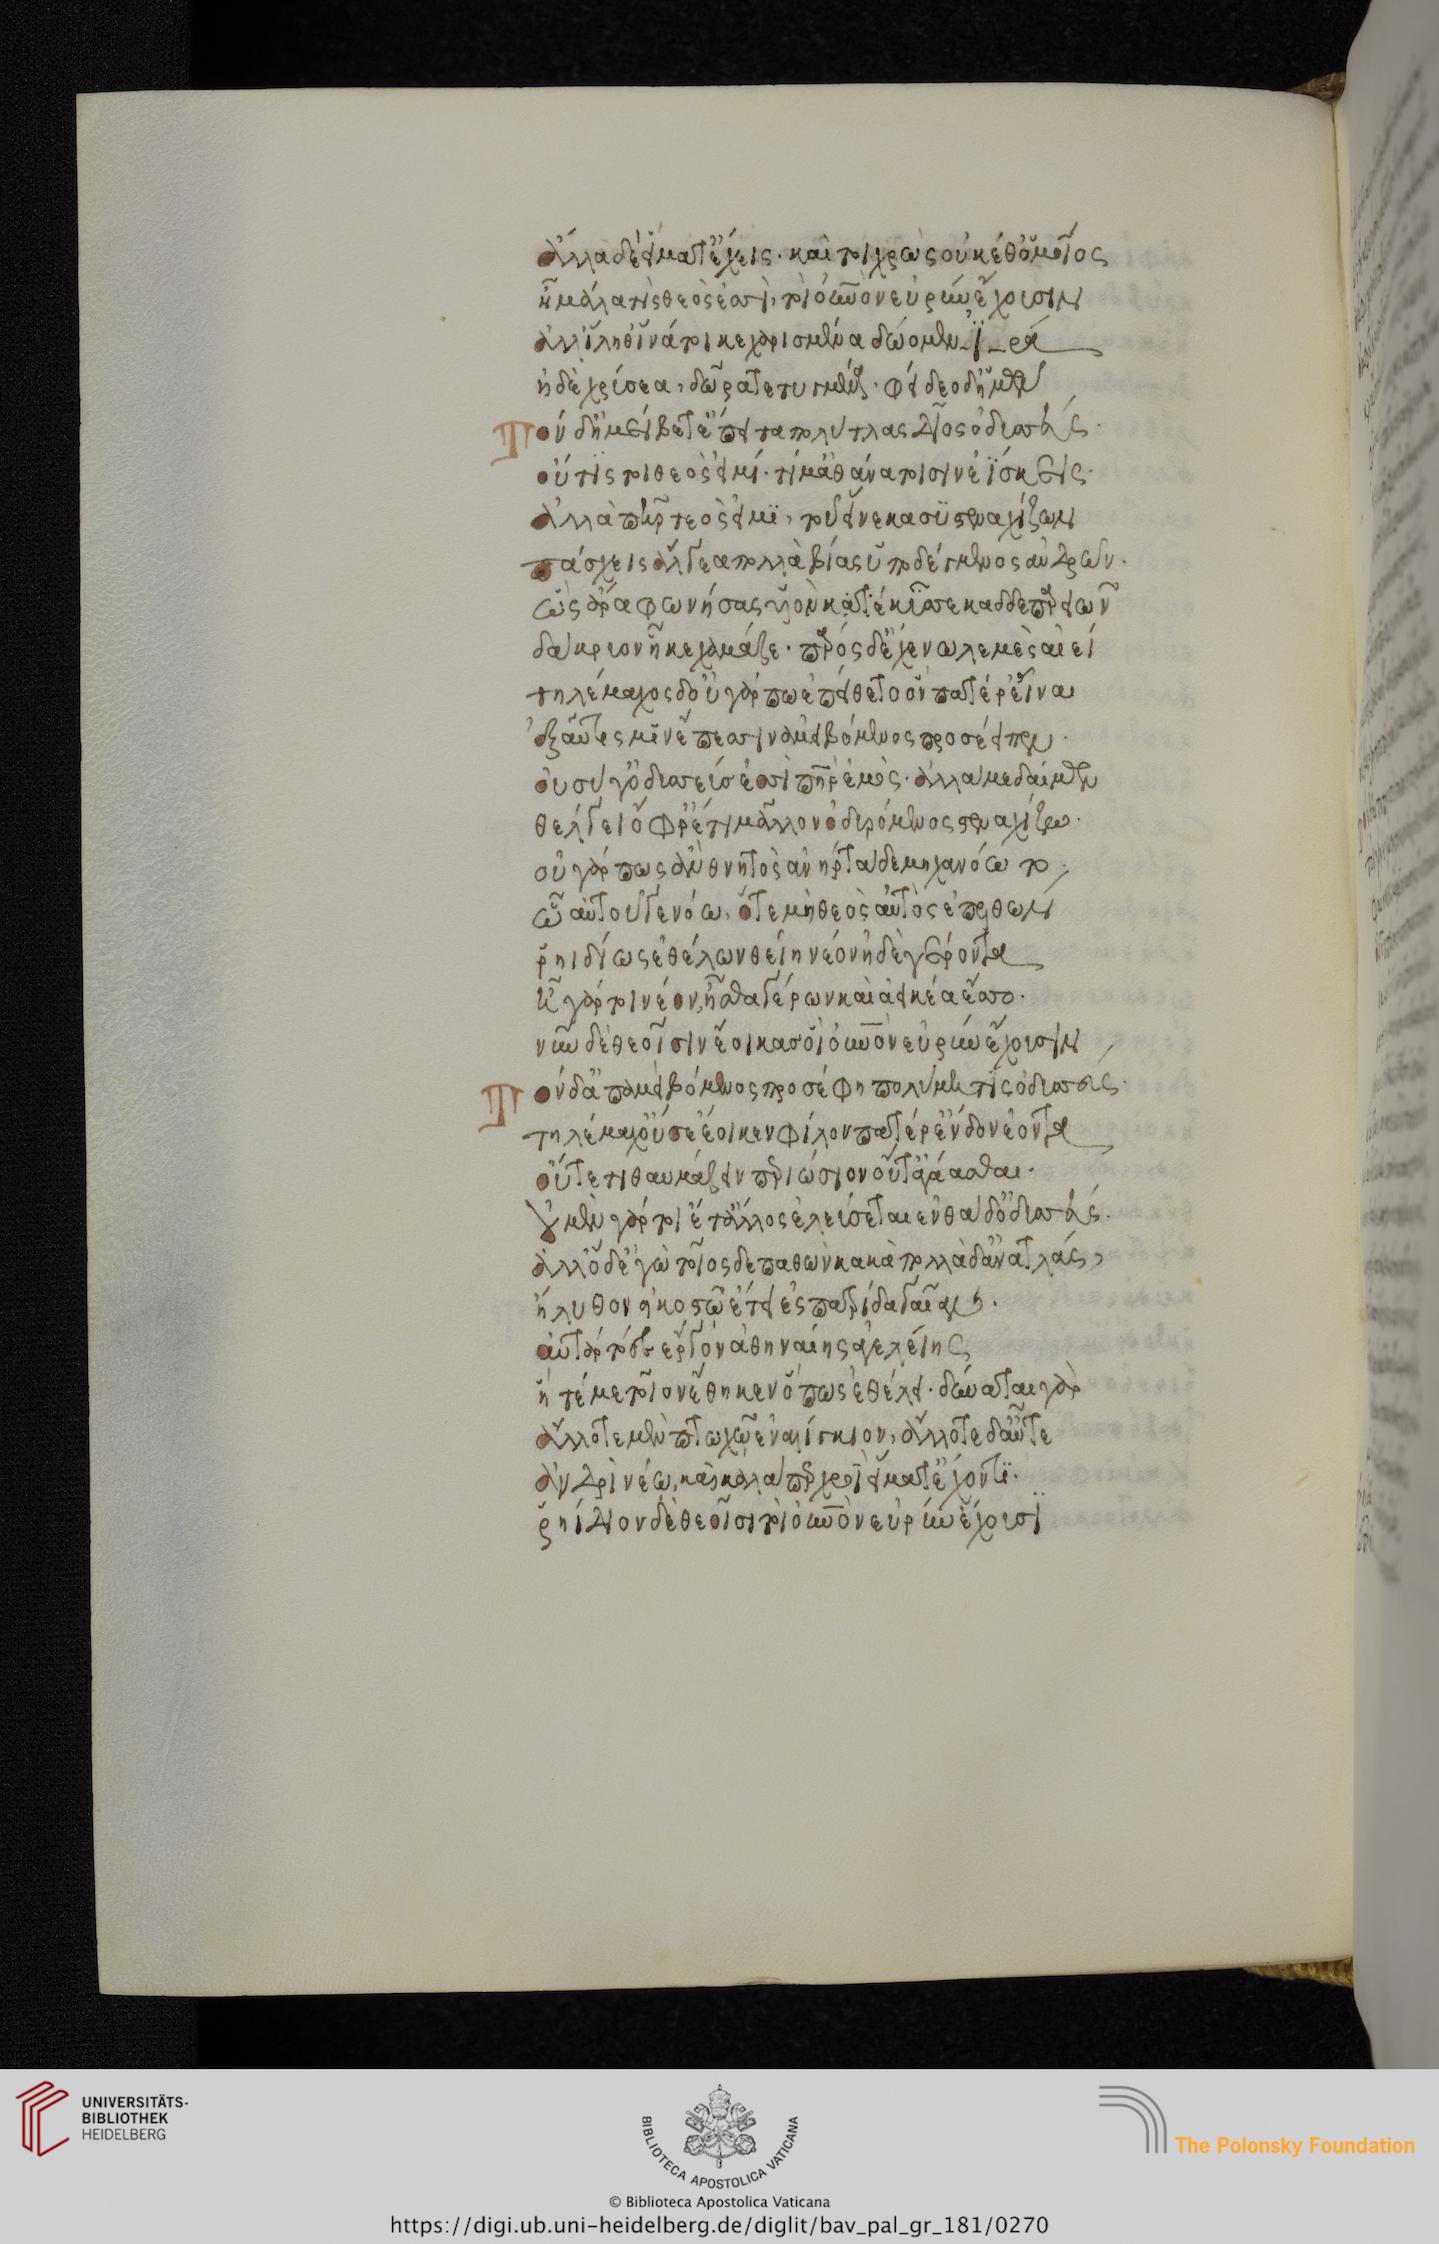 ἄλλα δὲ εἵματ' ἔχεις· καί τοι χρὼς οὐκέθ' ὅμοῖος
ἦ μάλα τὶς θεὸς ἐσσὶ, τοὶ οὐρανὸν εὐρὺν ἔχουσιν
ἀλλ' ἵληθ' ἵνά τοι κεχαρισμένα δώομεν ἱρά
ἠδὲ χρύσεα, δῶρα τετυγμένα· φείδεο δ' ἡμέων
Τὸν δ' ἠμείβετ' ἔπειτα πολύτλας δῖος ὀδυσσεύς·
οὔτίς τοι θεός εἰμί· τί μ' ἀθανάτοισιν ἐΐσκεις·
ἀλλὰ πατὴρ τεὸς εἰμὶ, τοῦ εἵνεκα σὺ στεναχίζων
πάσχεις ἄλγεα πολλὰ βίας ὑποδέγμενος ἀνδρῶν·
ὣς ἄρα φωνήσας υἱὸν κατ' έκυσσε καδδε παρειῶν
δάκρυον ἧκε χαμάζε· πρός δ' ἔχε νωλεμὲς αἰεί
τηλέμαχος δ' οὐ γάρ πω ἐπείθετο ὃν πατέρ' εἶναι
ἐξαῦτίς μιν ἔπεσσιν ἀμειβόμενος προσέειπεν·
οὐ σύ γ' ὀδυσσεύς ἐσσὶ πατὴρ ἐμὸς· ἀλλά με δαίμων
θέλγει ὄφρ' ἔτι μᾶλλον ὀδυρόμενος στεναχίζω·
οὐ γάρ πως ἂν θνητὸς ἀνὴρ τάδε μηχανόῳτο
ᾧ αὐτοῦ γε νόω, ὅτε μὴ θεὸς αὐτὸς ἐπελθὼν
ῥηιδίως ἐθέλων θείη νέον ἠδὲ γέροντα
ἦ γάρ τοι νέον, ἦσθα γέρων καὶ ἀεικέα ἕσσο·
νῦν δὲ θεοῖσιν ἔοικας οἳ οὐρανὸν εὐρὺν ἔχουσιν
Τὸν δ' ἀπαμειβόμενος προσέφη πολύμητις ὀδυσσεύς·
τηλέμαχ' οὔ σε ἔοικεν φίλον πατέρ' ἔνδον ἐόντα
οὔτέ τι θαυμάζειν περιώσιον οὔτ' ἀγάασθαι·
οὐ μὲν γάρ τοι ἔτ' ἄλλος ἐλεύσεται ἐνθάδ' ὀδυσσεύς·
ἀλλ' ὅδ' ἐγὼ τοῖος δε παθὼν κακὰ πολλὰ δ' ἀνατλάς,
ἤλυθον εἰκοστῷ ἔτει ἐς πατρίδα γαῖαν·
αὐτάρ τόδε ἔργον ἀθηναίης ἀγελείης
ἥ τέ με τοῖον ἔθηκεν ὅπως ἐθέλει· δύναται γὰρ
ἄλλοτε μὲν πτωχῷ ἐναλίγκιον, ἄλλοτε δ' αὖτε
ἀνδρὶ νέῳ, καὶ καλὰ περὶ χροῒ εἵματ' ἔχοντι·
ῥηΐδιον δὲ θεοῖσι τοὶ οὐρανὸν εὐρὺν ἔχουσι
UNIVERSITÄTS-
BIBLIOTHEK
HEIDELBERG
BIBLIOTECA APOSTOLICA VATICANA
The Polonsky Foundation
© Biblioteca Apostolica Vaticana
https://digi.ub.uni-heidelberg.de/diglit/bav_pal_gr_181/0270